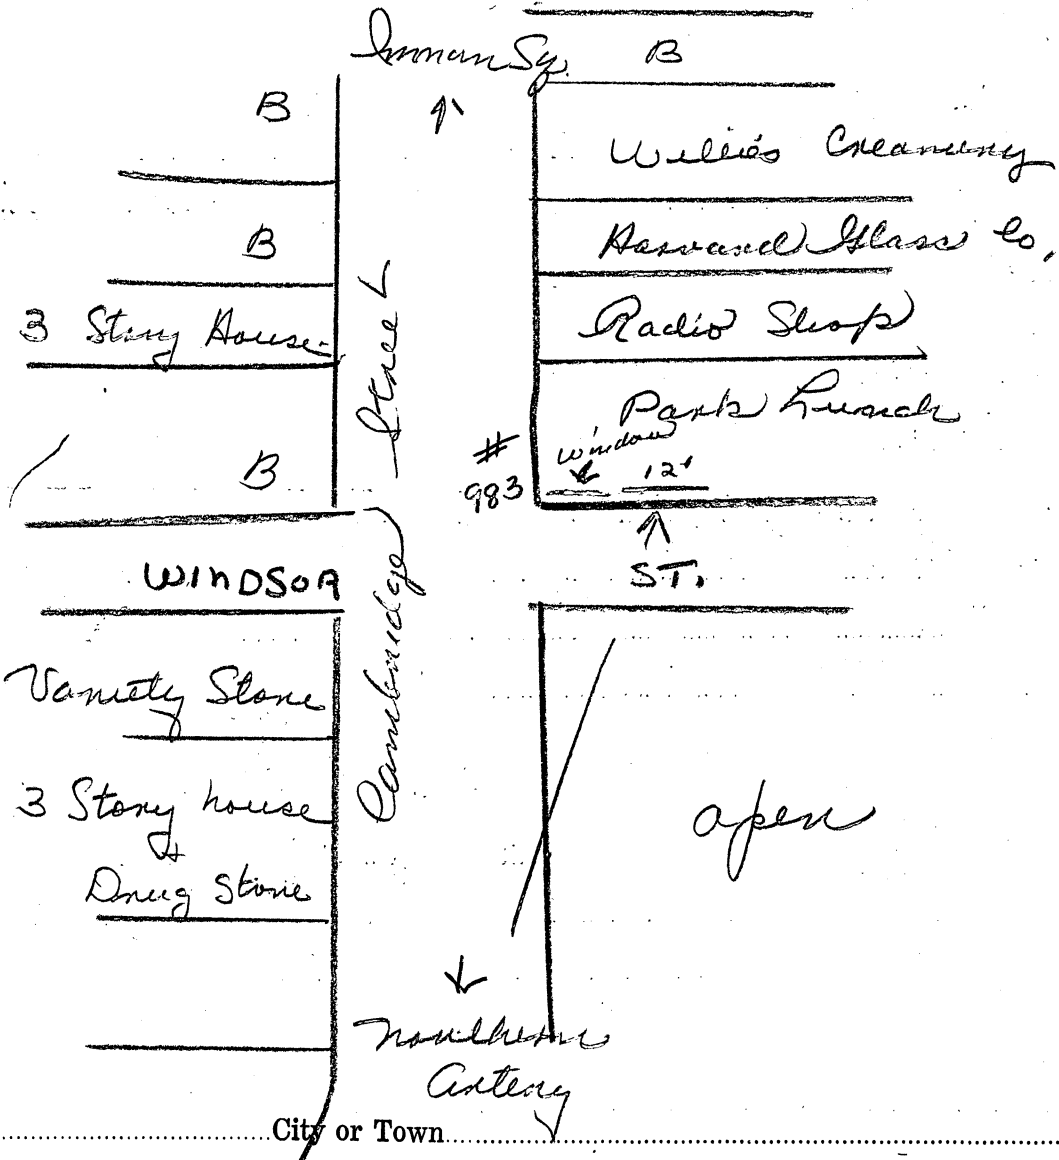 Inman Sq.
B
B
Willie's Creamery
B
Harvard Glass Co.
3 Story House
Radio Shop
Park Lunch
Window
12'
#
983
B
Cambridge Street
WINDSOR
ST.
Variety Store
3 Story house
+
Drug Store
open
Northern
Artery
City or Town